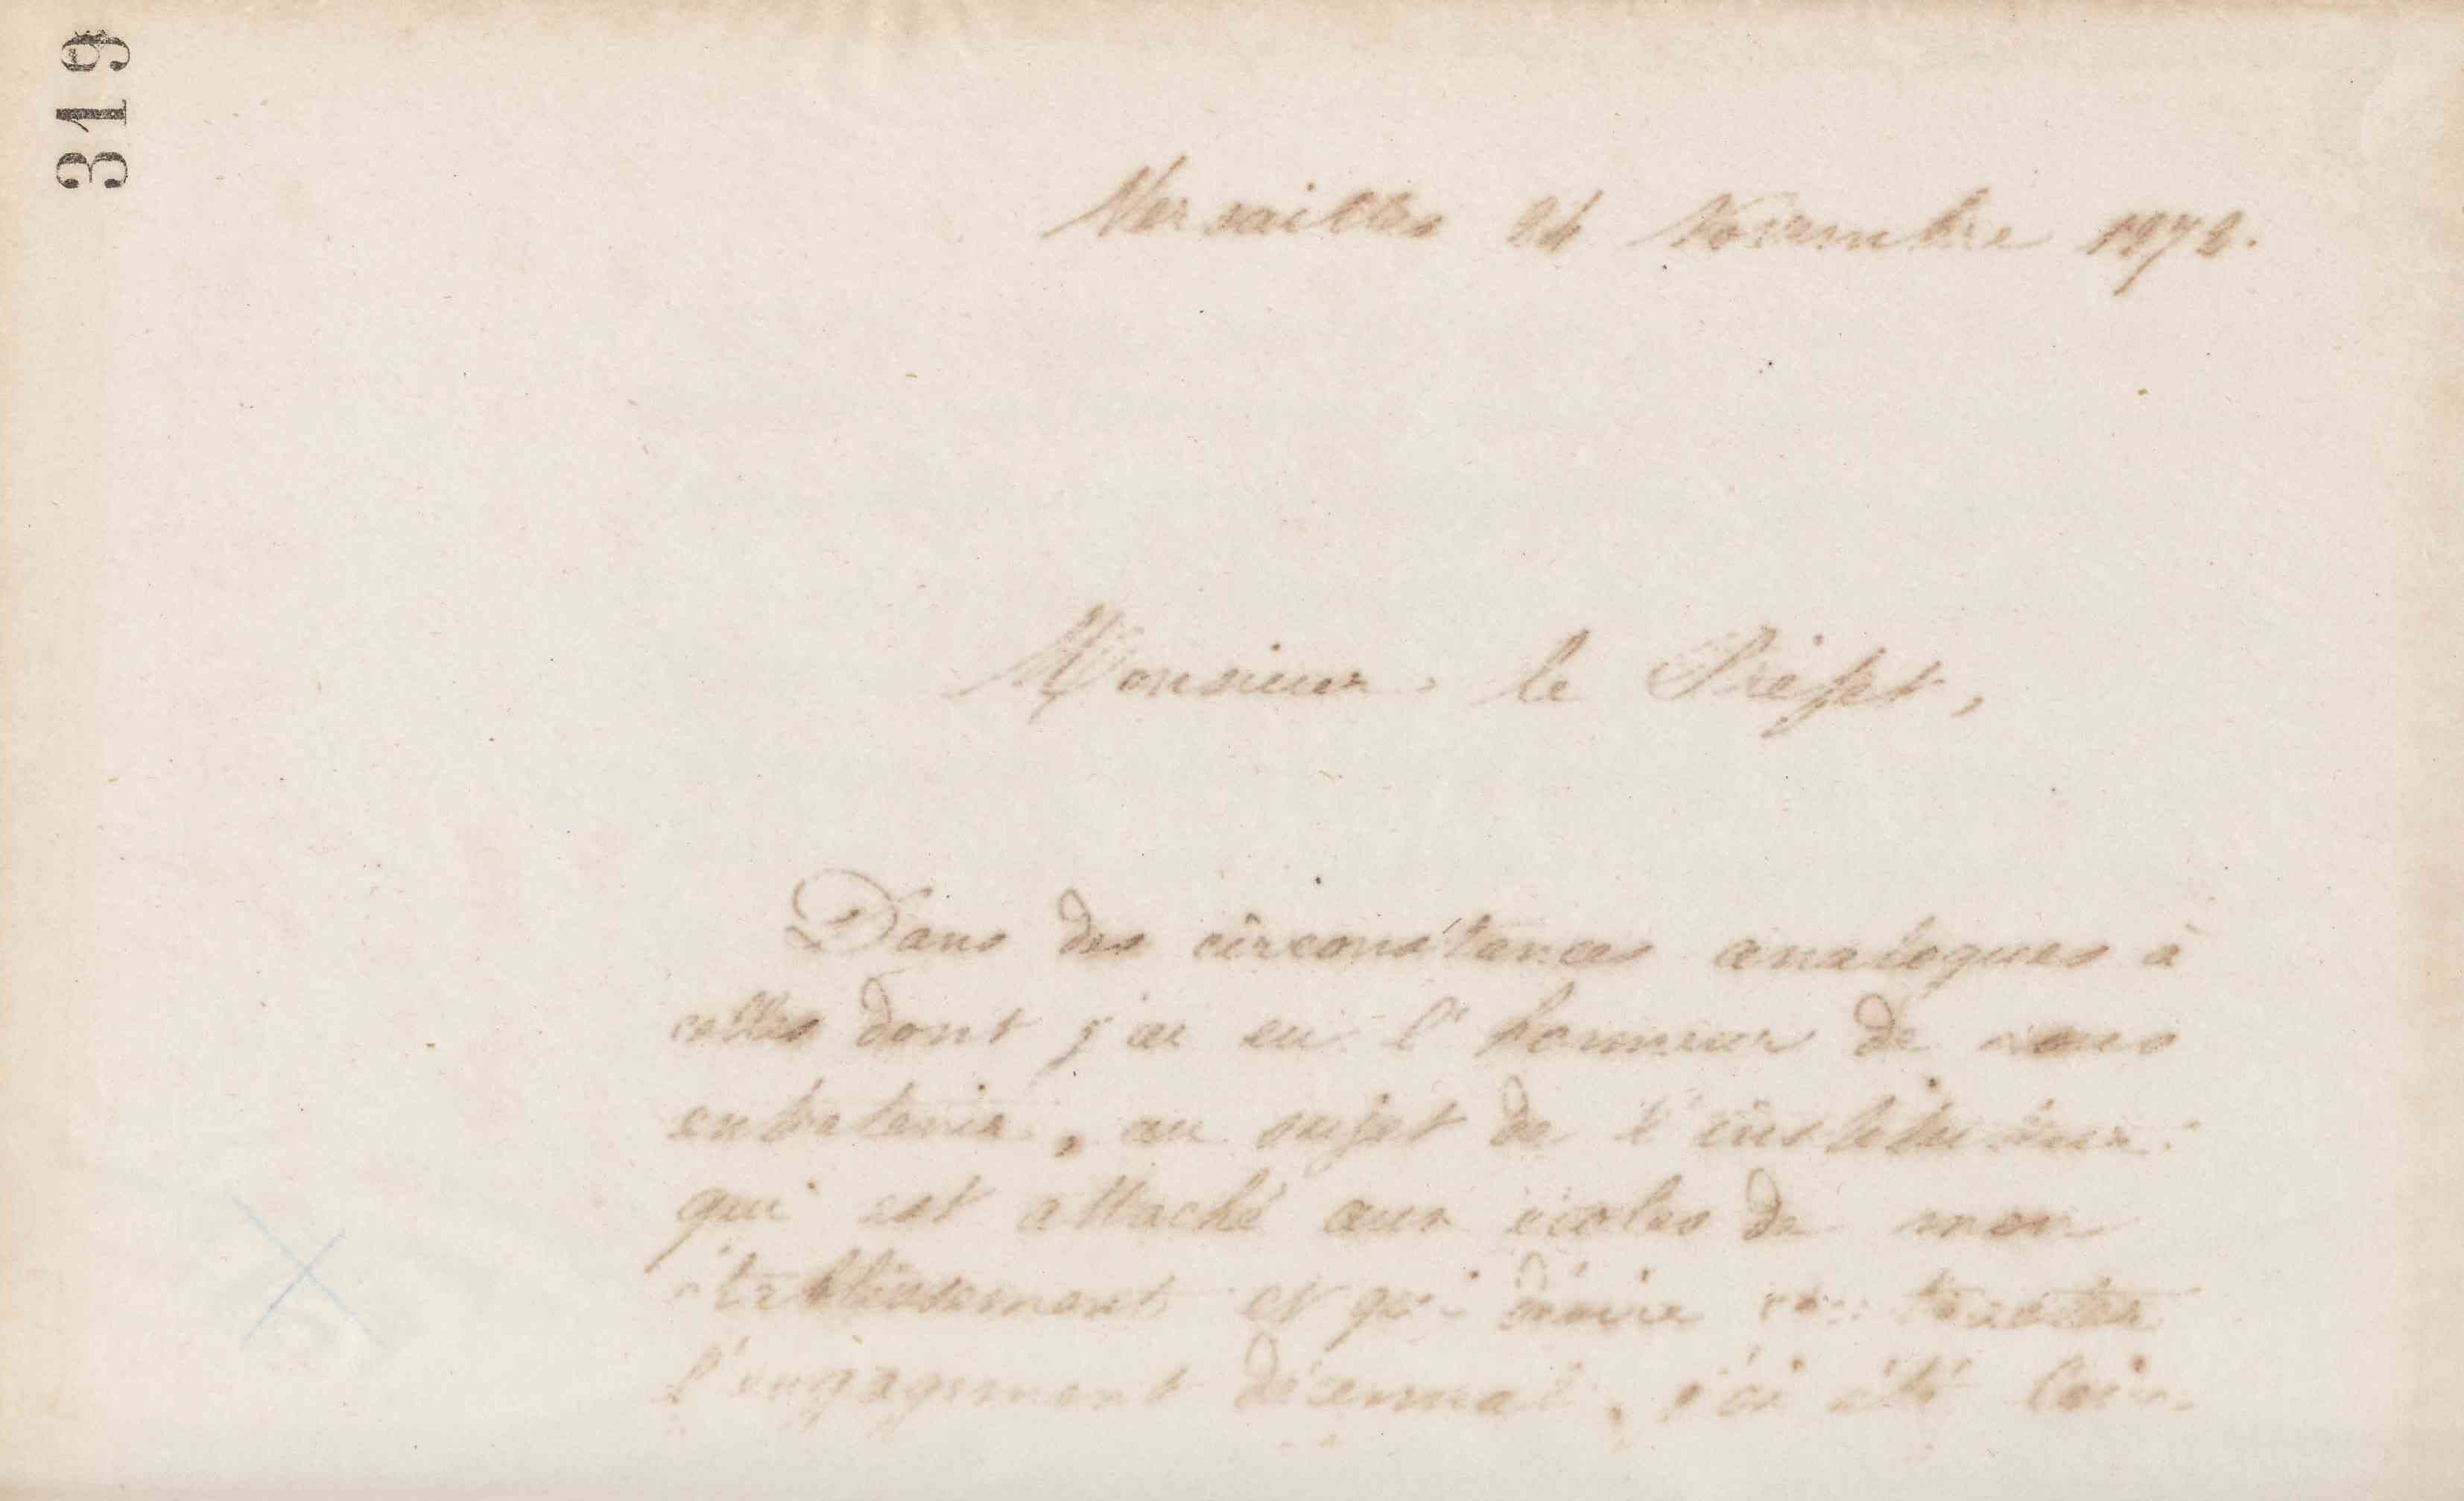 319
Versailles 24 Novembre 1872.
Monsieur le Préfet,
Dans des circonstances analogues à
celles dont j'ai eu l'honneur de vous
entretenir, au sujet de l'instituteur
qui est attaché aux écoles de mon
établissement et qui désire contracter
l'engagement décennal, j'ai été